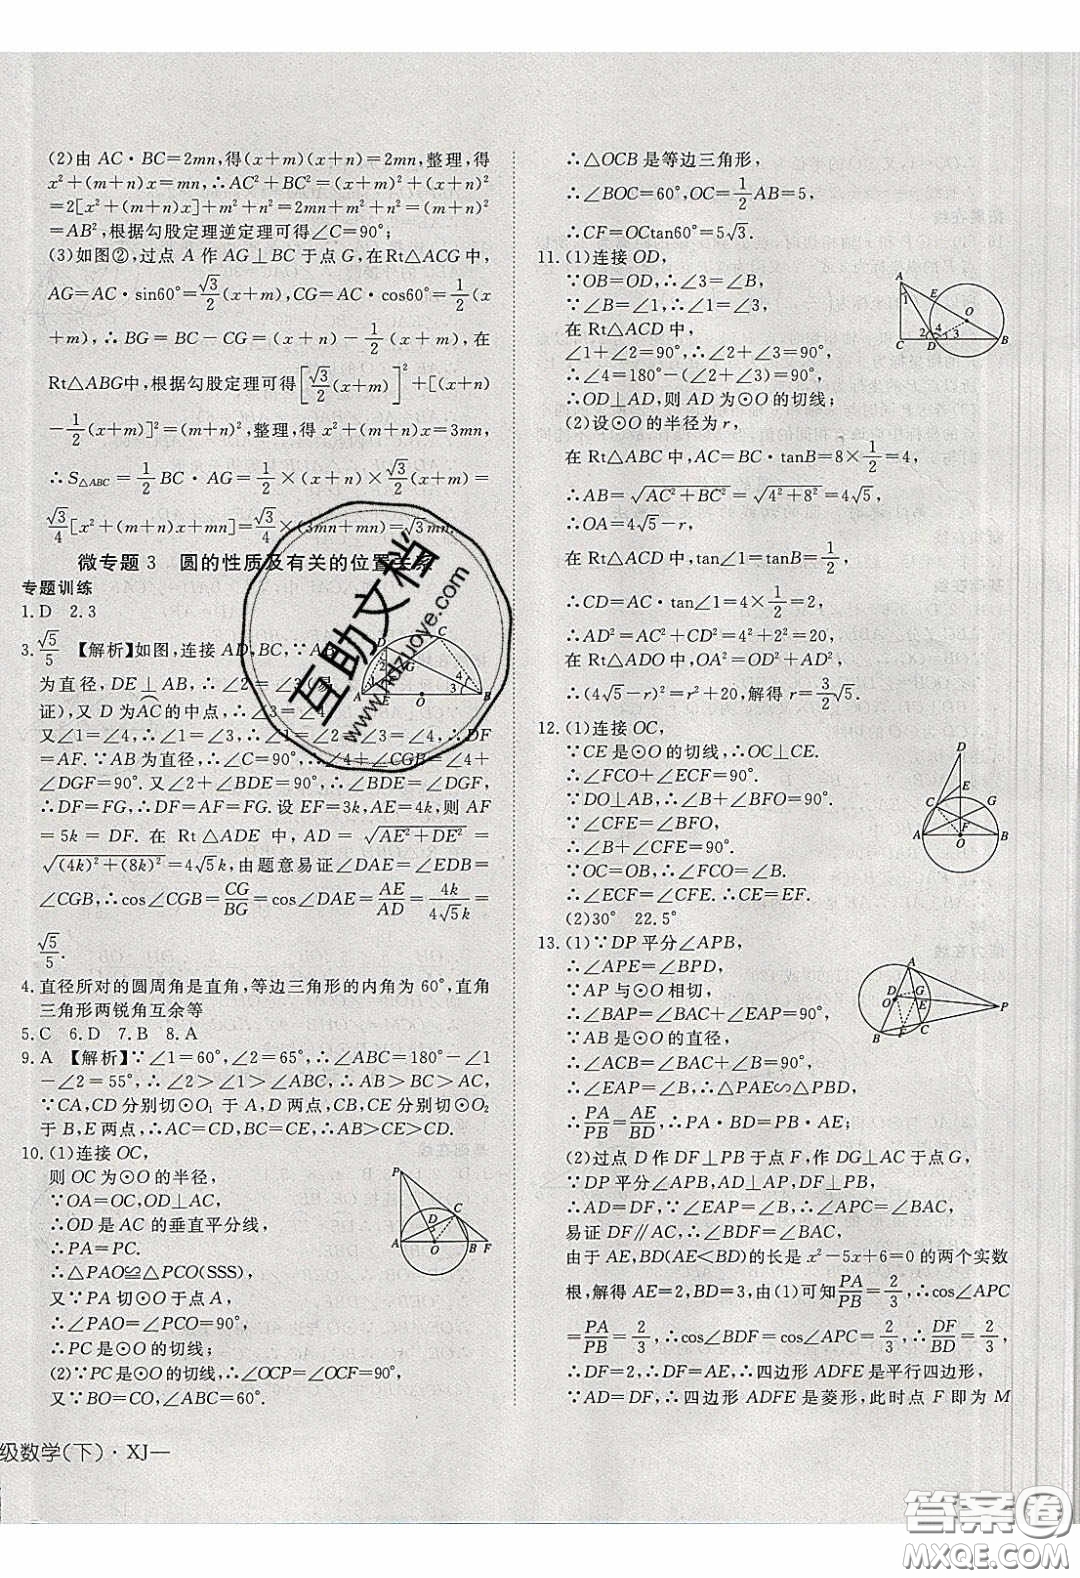 (2)由 AC·BC=2mn,得(x+m)(x+n)=2mn,整理,得
x²+(m+n)x=mn,∴AC²+BC²=(x+m)²+(x+n)²
=2[x²+(m+n)x]+m²+n²=2mn+m²+n²=(m+n)²
=AB²,根据勾股定理逆定理可得∠C=90°;
(3)如图②,过点 A 作 AG⊥BC 于点 G,在Rt△ACG 中,
AG=AC·sin60°=√3/2(x+m),CG=AC·cos60°=1/2(x
+m),∴BG=BC-CG=(x+n)-1/2(x+m).在
Rt△ABG中,根据勾股定理可得[√3/2(x+m)]²+[(x+n)
-1/2(x+m)]²=(m+n)²,整理,得 x²+(m+n)x=3mn,
∴S△ABC=1/2BC·AG=1/2×(x+n)×√3/2(x+m)=
√3/4[x²+(m+n)x+mn]=√3/4×(3mn+mn)=√3mn.
微专题3 圆的性质及有关的位置关系
专题训练
1.D 2.3
3.√5/5 【解析】如图,连接AD,BC,∵AB
为直径,DE⊥AB,∴∠2=∠3(易
证),又 D 为AC的中点,∴∠3=∠4,
又∠1=∠4,∴∠1=∠2=∠3=∠4,∴DF
=AF.∵AB为直径,∴∠C=90°,∴∠4+∠CGB=∠4+
∠DGF=90°.又∠2+∠BDE=90°,∴∠BDE=∠DGF,
∴DF=FG,∴DF=AF=FG.设 EF=3k,AE=4k,则 AF
=5k=DF.在 Rt△ADE 中,AD=√(AE²+DE²)=
√((4k)²+(8k)²)=4√5k,由题意易证∠DAE=∠EDB=
∠CGB,∴cos∠CGB=CG/BG=cos∠DAE=AE/AD=4k/4√5k=
√5/5.
4.直径所对的圆周角是直角,等边三角形的内角为60°,直角
三角形两锐角互余等
5.C 6.D 7.B 8.A
9.A 【解析】∵∠1=60°,∠2=65°,∴∠ABC=180°-∠1
-∠2=55°,∴∠2>∠1>∠ABC,∴AB>BC>AC,
∵CA,CD分别切⊙O₁于A,D两点,CB,CE分别切⊙O₂
于B,E两点,∴AC=CD,BC=CE,∴AB>CE>CD.
10.(1)连接OC,
则OC为⊙O的半径,
∵OA=OC,OD⊥AC,
∴OD是AC的垂直平分线,
∴PA=PC.
∴△PAO≌△PCO(SSS),
又∵PA切⊙O于点A,
∴∠PAO=∠PCO=90°,
∴PC是⊙O的切线;
(2)∵PC是⊙O的切线,∴∠OCP=∠OCF=90°,
又∵BO=CO,∠ABC=60°.
级数学(下)·XJ—
∴△OCB是等边三角形,
∴∠BOC=60°,OC=1/2AB=5,
∴CF=OCtan60°=5√3.
11.(1)连接OD,
∵OB=OD,∴∠3=∠B,
∵∠B=∠1,∴∠1=∠3,
在Rt△ACD中,
∠1+∠2=90°,∴∠2+∠3=90°,
∴∠4=180°-(∠2+∠3)=90°,
∴OD⊥AD,则AD为⊙O的切线;
(2)设⊙O的半径为r,
在Rt△ABC中,AC=BC·tanB=8×1/2=4,
∴AB=√(AC²+BC²)=√(4²+8²)=4√5,
∴OA=4√5-r,
在Rt△ACD中,tan∠1=tanB=1/2,
∴CD=AC·tan∠1=4×1/2=2,
∴AD²=AC²+CD²=4²+2²=20,
在Rt△ADO中,OA²=OD²+AD²,
∴(4√5-r)²=r²+20,解得r=3/2√5.
12.(1)连接OC,
∵CE是⊙O的切线,∴OC⊥CE.
∴∠FCO+∠ECF=90°.
∵DO⊥AB,∴∠B+∠BFO=90°.
∵∠CFE=∠BFO,
∴∠B+∠CFE=90°.
∵OC=OB,∴∠FCO=∠B.
∴∠ECF=∠CFE.∴CE=EF.
(2)30° 22.5°
13.(1)∵DP平分∠APB,
∴∠APE=∠BPD,
∵AP与⊙O相切,
∴∠BAP=∠BAC+∠EAP=90°,
∵AB是⊙O的直径,
∴∠ACB=∠BAC+∠B=90°,
∴∠EAP=∠B,∴△PAE∽△PBD,
∴PA/PB=AE/BD,∴PA·BD=PB·AE;
(2)过点D作DF⊥PB于点F,作DG⊥AC于点G,
∵DP平分∠APB,AD⊥AP,DF⊥PB,
∴AD=DF,∵∠EAP=∠B,∴∠APC=∠BAC,
易证DF∥AC,∴∠BDF=∠BAC,
由于AE,BD(AE<BD)的长是x²-5x+6=0的两个实数
根,解得AE=2,BD=3,由(1)可知PA/PB=2/3,∴cos∠APC
=PA/PB=2/3,∴cos∠BDF=cos∠APC=2/3,∴DF/BD=2/3,
∴DF=2,∴DF=AE,∴四边形ADFE是平行四边形,
∵AD=DF,∴四边形ADFE是菱形,此时点F即为M
互助文档
www.hdzuoye.com
答案圈
MXQE.COM